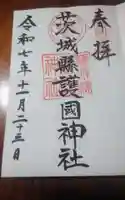 奉拝
茨城縣護國神社
令和七年十一月二十三日